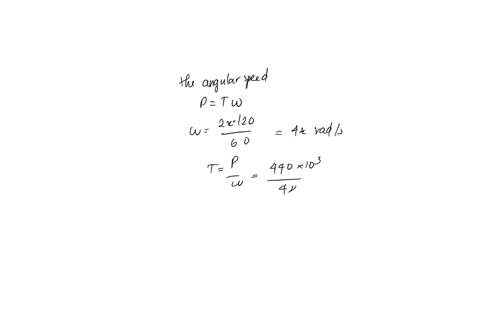 the angular speed
P = T ω
ω = 2π·120 / 60 = 4π rad/s
T = P / ω = 440 × 10³ / 4π